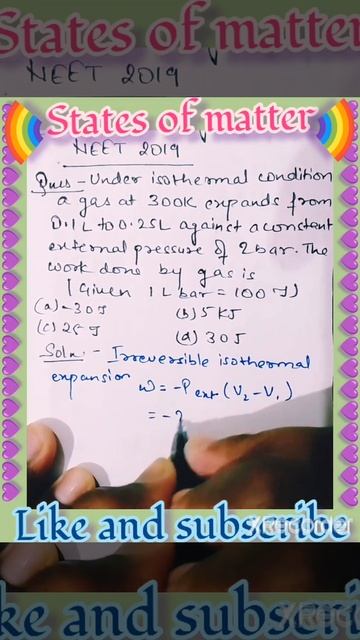 States of matter
NEET 2019
States of matter
NEET 2019
Ques - Under isothermal condition
a gas at 300K expands from
0.1 L to 0.25L against a constant
external pressure of 2 bar. The
work done by gas is
[Given 1 L bar = 100 J]
(a) - 30 J
(b) 5 KJ
(c) 25 J
(d) 30 J
Soln: - Irreversible isothermal
expansion
W = -Pext (V2 - V1)
= - 2
Like and subscribe
XRecorder
ke and subscrib
XRec